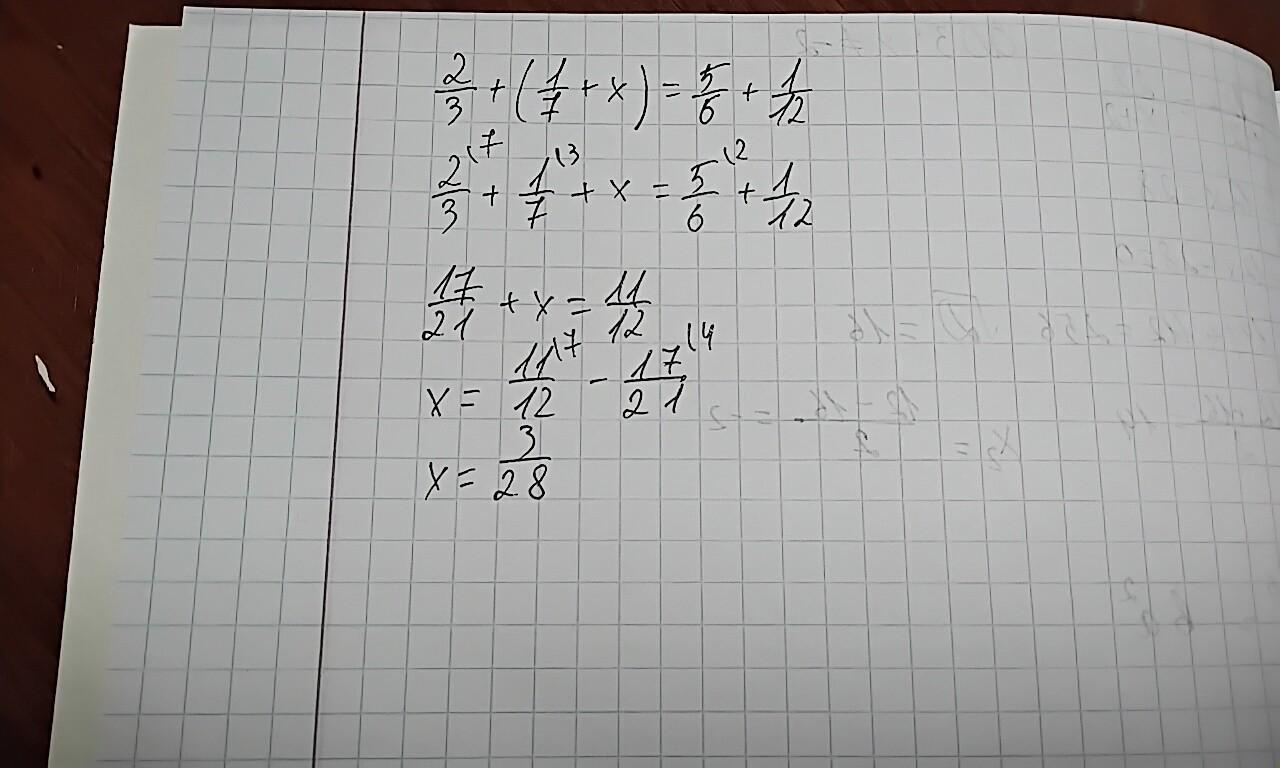 2/3 + (1/7 + x) = 5/6 + 1/12
2/3 \7 + 1/7 \3 + x = 5/6 \2 + 1/12
17/21 + x = 11/12
x = 11/12 \7 − 17/21 \4
x = 3/28